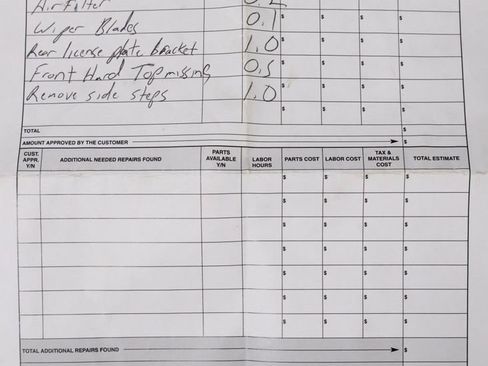 Air Filter 0.2 $
Wiper Blades 0.1 $ $
Rear license plate bracket 1.0 $ $
Front Hard Top missing 0.5 $ $
Remove side steps 1.0 $ $
$ $ $ $
TOTAL $
AMOUNT APPROVED BY THE CUSTOMER $
CUST. APPR. Y/N ADDITIONAL NEEDED REPAIRS FOUND PARTS AVAILABLE Y/N LABOR HOURS PARTS COST LABOR COST TAX & MATERIALS COST TOTAL ESTIMATE
$ $ $ $
$ $ $ $
$ $ $ $
$ $ $ $
$ $ $ $
$ $ $ $
$ $ $ $
TOTAL ADDITIONAL REPAIRS FOUND $